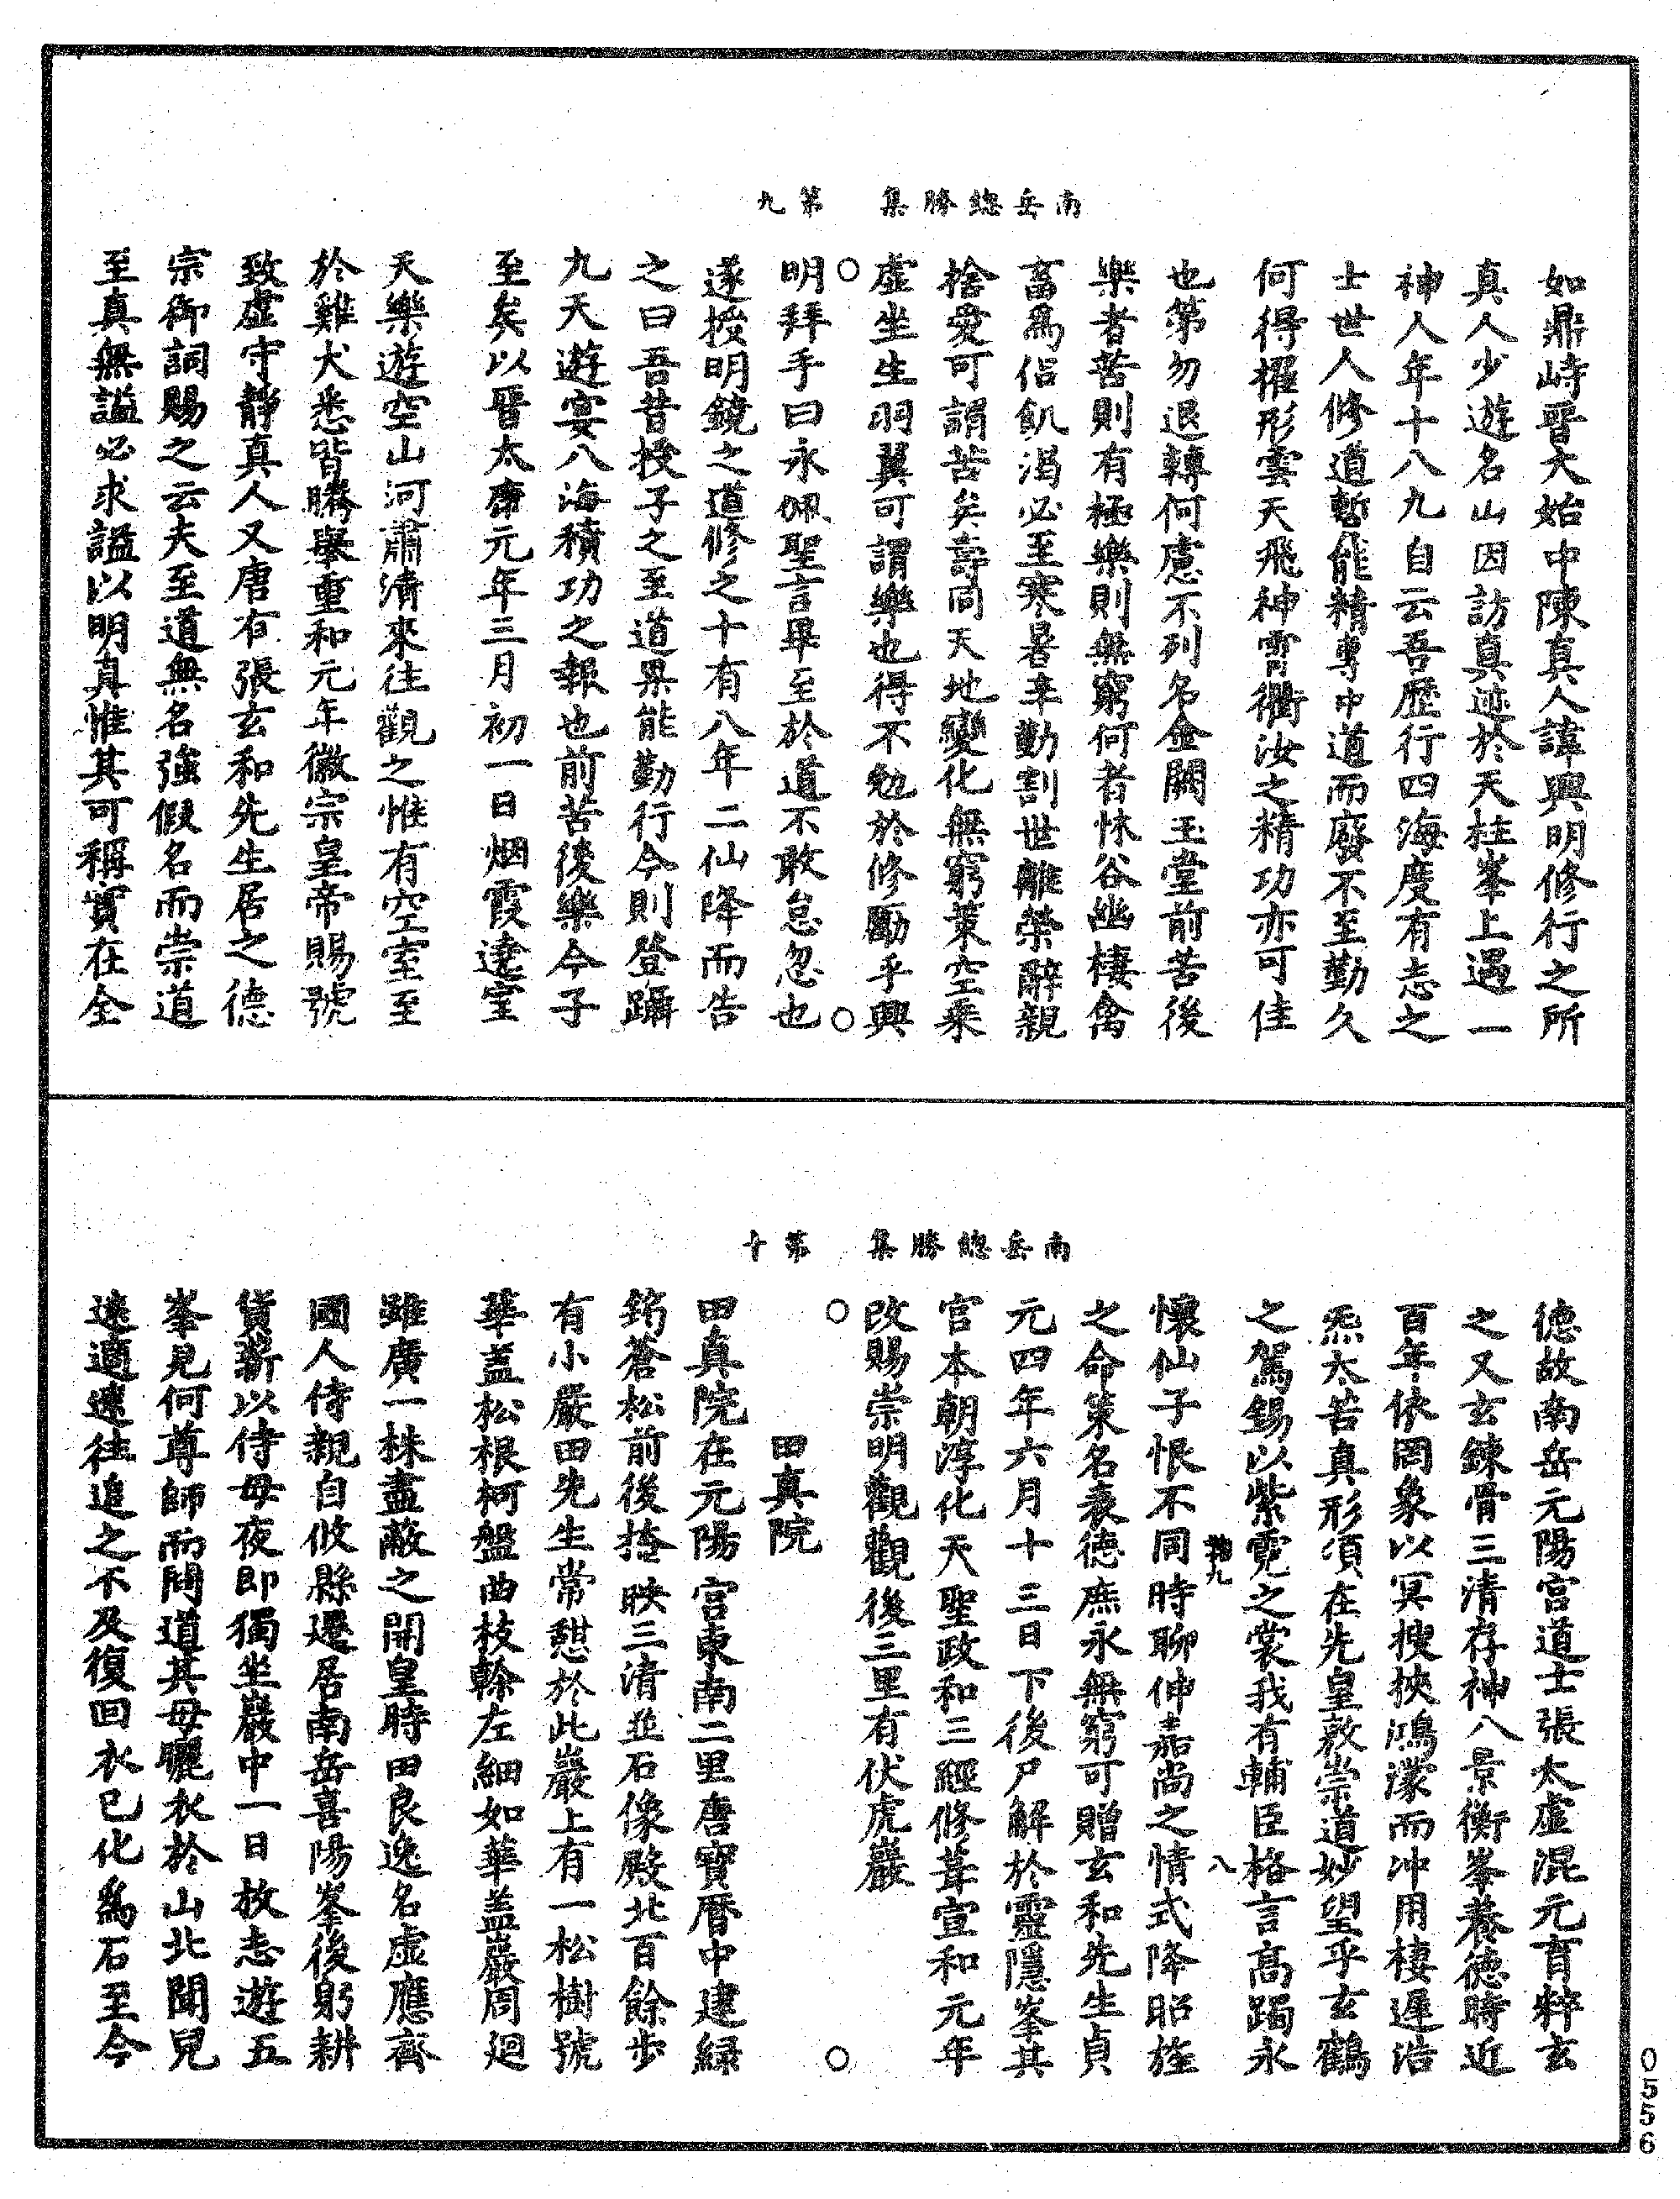 南岳總勝集　第九
如鼎峙晉大始中陳真人諱興明修行之所
真人少遊名山因訪真迹於天柱峯上遇一
神人年十八九自云吾歷行四海度有志之
士世人修道暫能精專中道而廢不至勤久
何得擢形雲天飛神霄衢汝之精功亦可佳
也第勿退轉何慮不列名金闕玉堂前苦後
樂者苦則有極樂則無窮何者林谷幽棲禽
畜爲侶飢渴必至寒暑辛勤割世離榮辭親
捨愛可謂苦矣壽同天地變化無窮策空乘
虛坐生羽翼可謂樂也得不勉於修勵乎興
明拜手曰永佩聖言畢至於道不敢怠忽也
遂授明鏡之道修之十有八年二仙降而告
之曰吾昔授子之至道果能勤行今則登躡
九天遊宴八海積功之報也前苦後樂今子
至矣以晉太康元年三月初一日烟霞遶室
天樂遊空山河肅清來往觀之惟有空室至
於雞犬悉皆騰舉重和元年徽宗皇帝賜號
致虛守靜真人又唐有張玄和先生居之德
宗御詞賜之云夫至道無名強假名而崇道
至真無謚必求謚以明真惟其可稱實在全
南岳總勝集　第十
德故南岳元陽宮道士張太虛混元育粹玄
之又玄鍊骨三清存神八景衡峯養德時近
百年依罔象以冥搜挾鴻濛而沖用棲遲浩
炁太苦真形頃在先皇敦崇道妙望乎玄鶴
之駕錫以紫霓之裳我有輔臣格言高躅永
八
懷仙子恨不同時聊伸嘉尚之情式降昭旌
之命策名表德庶永無窮可贈玄和先生貞
元四年六月十三日下後尸解於靈隱峯其
宫本朝淳化天聖政和三經修葺宣和元年
改賜崇明觀觀後三里有伏虎巖
田真院
田真院在元陽宮東南二里唐寶曆中建緑
筠蒼松前後掩映三清並石像殿北百餘步
有小嚴田先生常憇於此巖上有一松樹號
華盖松根柯盤曲枝榦左細如華盖嚴周迴
雖廣一株盡蔽之開皇時田良逸名虛應齊
國人侍親自攸縣遷居南岳喜陽峯後躬耕
貨薪以侍母夜即獨坐巖中一日放志遊五
峯見何尊師而問道其母曬衣於山北聞兒
遠適遽往追之不及復回衣已化爲石至今
0556